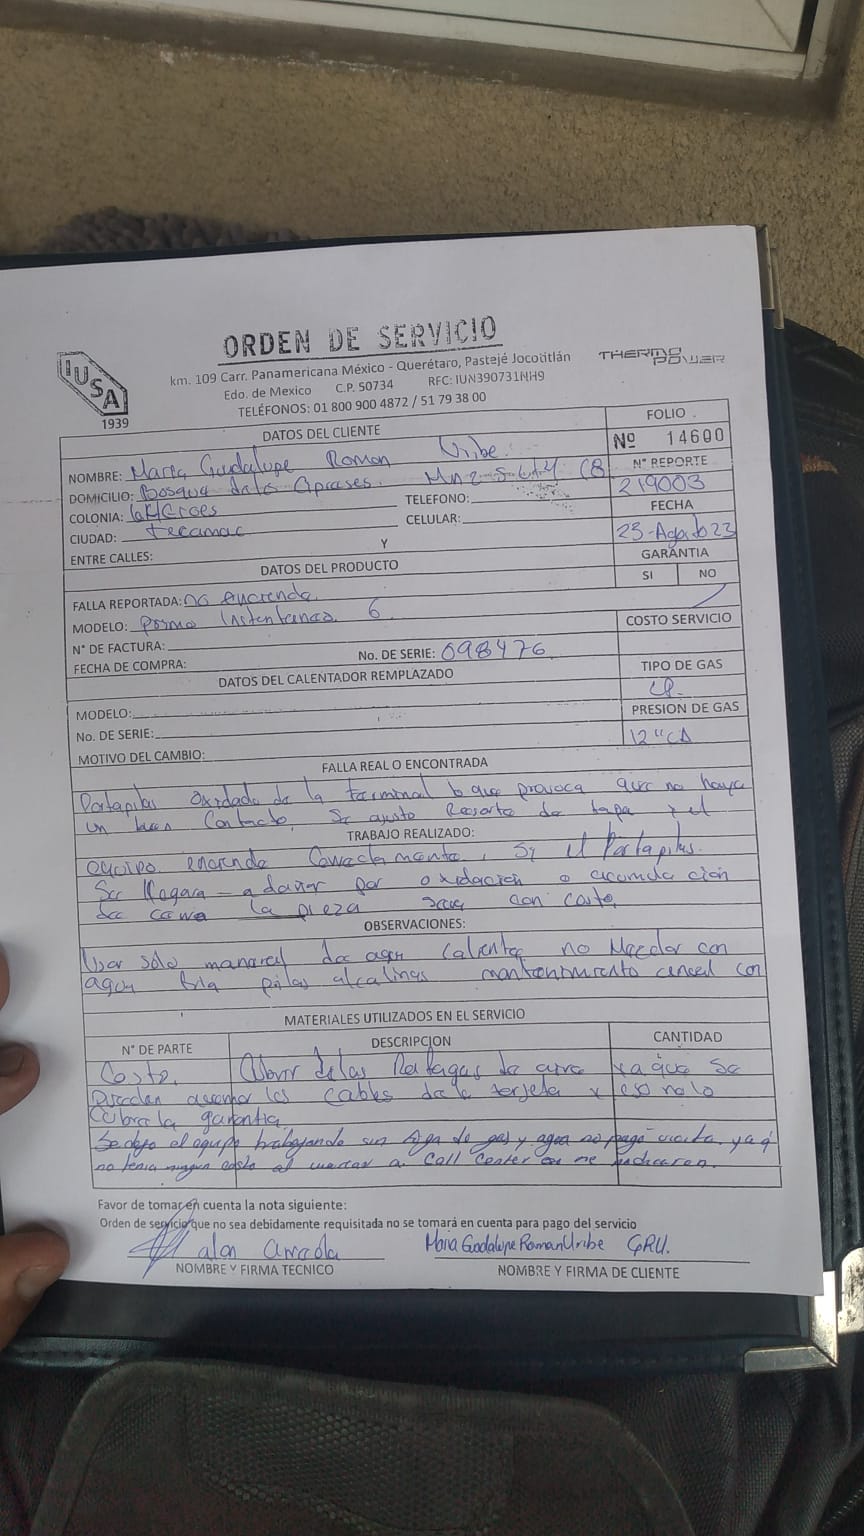 ORDEN DE SERVICIO
IUSA
1939
km. 109 Carr. Panamericana México - Querétaro, Pastejé Jocotitlán
Edo. de Mexico C.P. 50734 RFC: IUN390731NH9
TELÉFONOS: 01 800 900 4872 / 51 79 38 00
THERMO POWER
DATOS DEL CLIENTE
FOLIO
Nº 14600
NOMBRE: Maria Guadalupe Roman Uribe.
Nº REPORTE
219003
DOMICILIO: Bosque de los Mnz
COLONIA: los Heroes
TELEFONO:
FECHA
CIUDAD: tecamac
CELULAR:
25-Agosto 23
ENTRE CALLES: Y
GARANTIA
SI NO
DATOS DEL PRODUCTO
FALLA REPORTADA: no enciende.
MODELO: Instantaneo 6
COSTO SERVICIO
N° DE FACTURA:
No. DE SERIE: 098476
FECHA DE COMPRA:
TIPO DE GAS
DATOS DEL CALENTADOR REMPLAZADO
MODELO:
PRESION DE GAS
No. DE SERIE:
12"
MOTIVO DEL CAMBIO:
FALLA REAL O ENCONTRADA
Portapilas oxidado de la terminal lo que provoca que no haya
un buen Contacto. Se ajusto Resorte de tapa y el
TRABAJO REALIZADO:
equipo enciende Correctamente, Si el Portapilas
Se llegara a dañar por oxidacion o acumulacion
de la pieza con costo
OBSERVACIONES:
Usar solo manaral de agua Caliente no Mezclar con
agua fria pilas alcalinas mantenimiento anual con
MATERIALES UTILIZADOS EN EL SERVICIO
N° DE PARTE DESCRIPCION CANTIDAD
Costo. de las Rafagas de aire ya que se
Pueden los cables de la tarjeta y eso no lo
Cubre la garantia
Se dejo el equipo trabajando sin fuga de gas y agua no pago visita ya q
no tenia ningun costo al a Call Center me indicaron.
Favor de tomar en cuenta la nota siguiente:
Orden de servicio que no sea debidamente requisitada no se tomará en cuenta para pago del servicio
alan
Maria Guadalupe Roman Uribe GRU.
NOMBRE Y FIRMA TECNICO
NOMBRE Y FIRMA DE CLIENTE